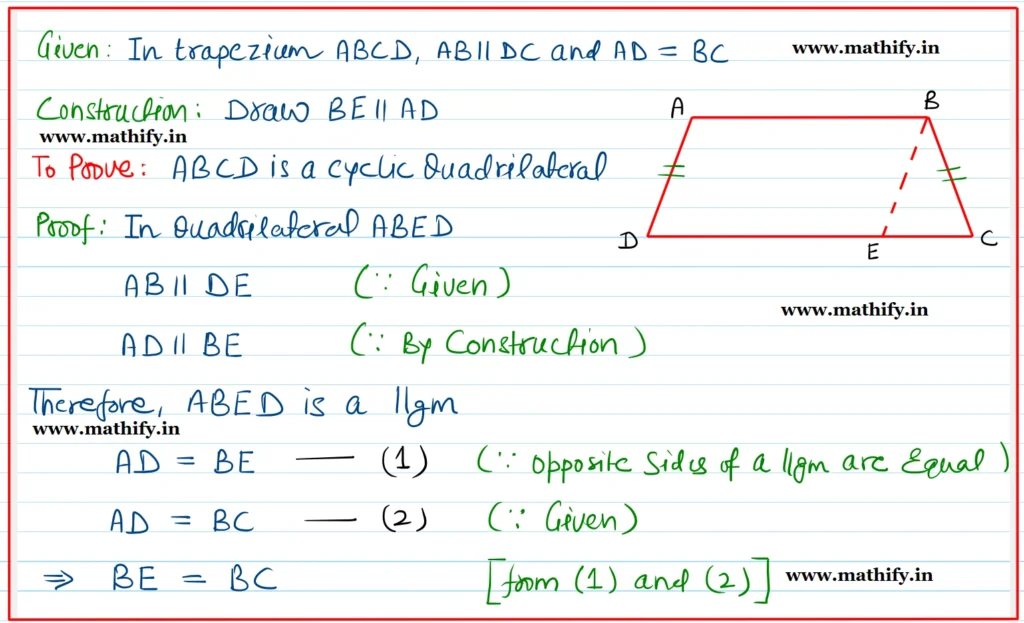 Given: In trapezium ABCD, AB || DC and AD = BC
www.mathify.in
Construction: Draw BE || AD
www.mathify.in
To Prove: ABCD is a cyclic Quadrilateral
A
B
D
E
C
Proof: In Quadrilateral ABED
AB || DE (∵ Given)
www.mathify.in
AD || BE (∵ By Construction)
Therefore, ABED is a ||gm
www.mathify.in
AD = BE — (1) (∵ opposite sides of a ||gm are Equal)
AD = BC — (2) (∵ Given)
⇒ BE = BC [from (1) and (2)]
www.mathify.in